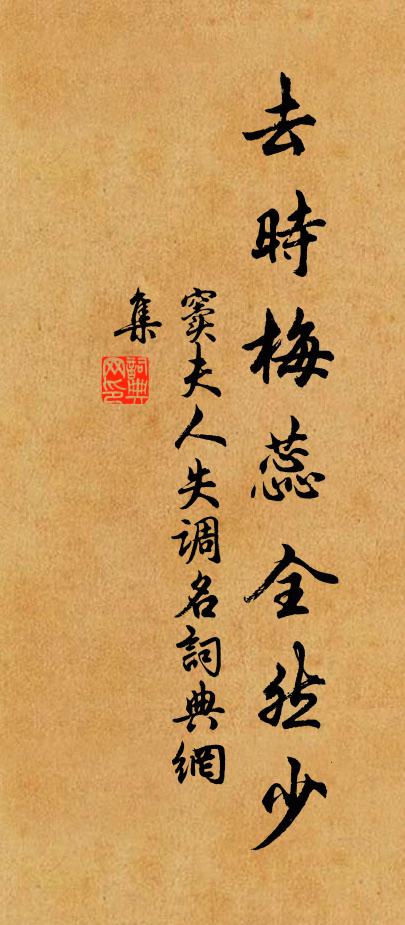 去時梅蕊全然少
竇夫人失調名詞典網
集
詞典
网印